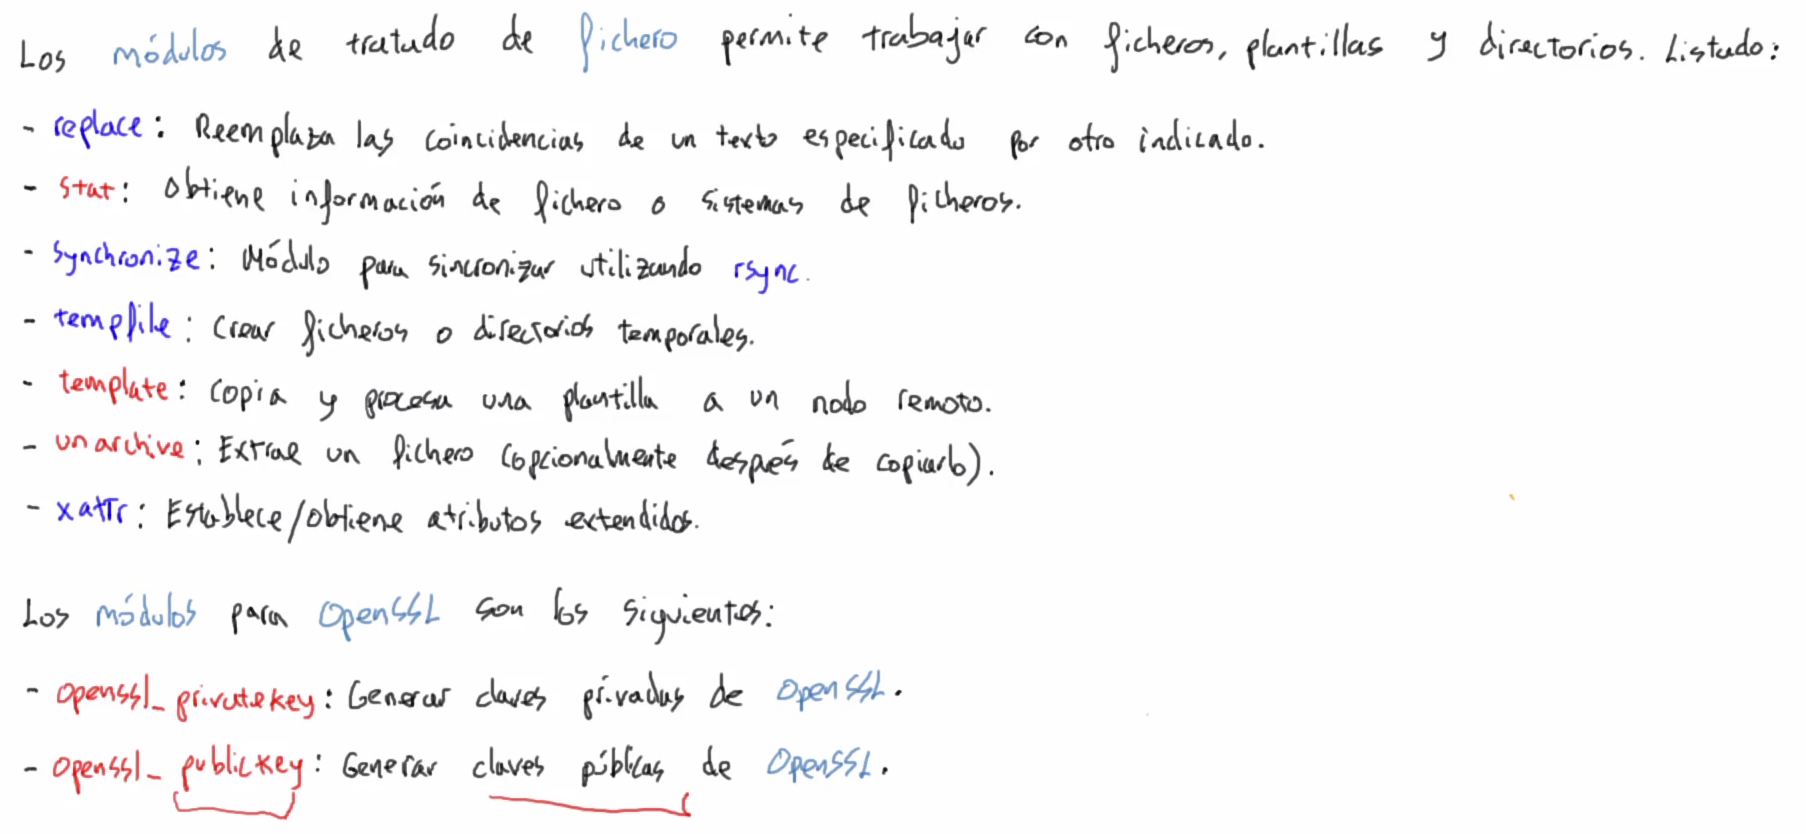 Los módulos de tratado de fichero permite trabajar con ficheros, plantillas y directorios. Listado:
- replace: Reemplaza las coincidencias de un texto especificado por otro indicado.
- stat: Obtiene información de fichero o sistemas de ficheros.
- synchronize: Módulo para sincronizar utilizando rsync.
- tempfile: Crear ficheros o directorios temporales.
- template: Copia y procesa una plantilla a un nodo remoto.
- unarchive: Extrae un fichero (opcionalmente después de copiarlo).
- xattr: Establece/obtiene atributos extendidos.
Los módulos para OpenSSL son los siguientes:
- openssl_privatekey: Generar claves privadas de OpenSSL.
- openssl_publickey: Generar claves públicas de OpenSSL.